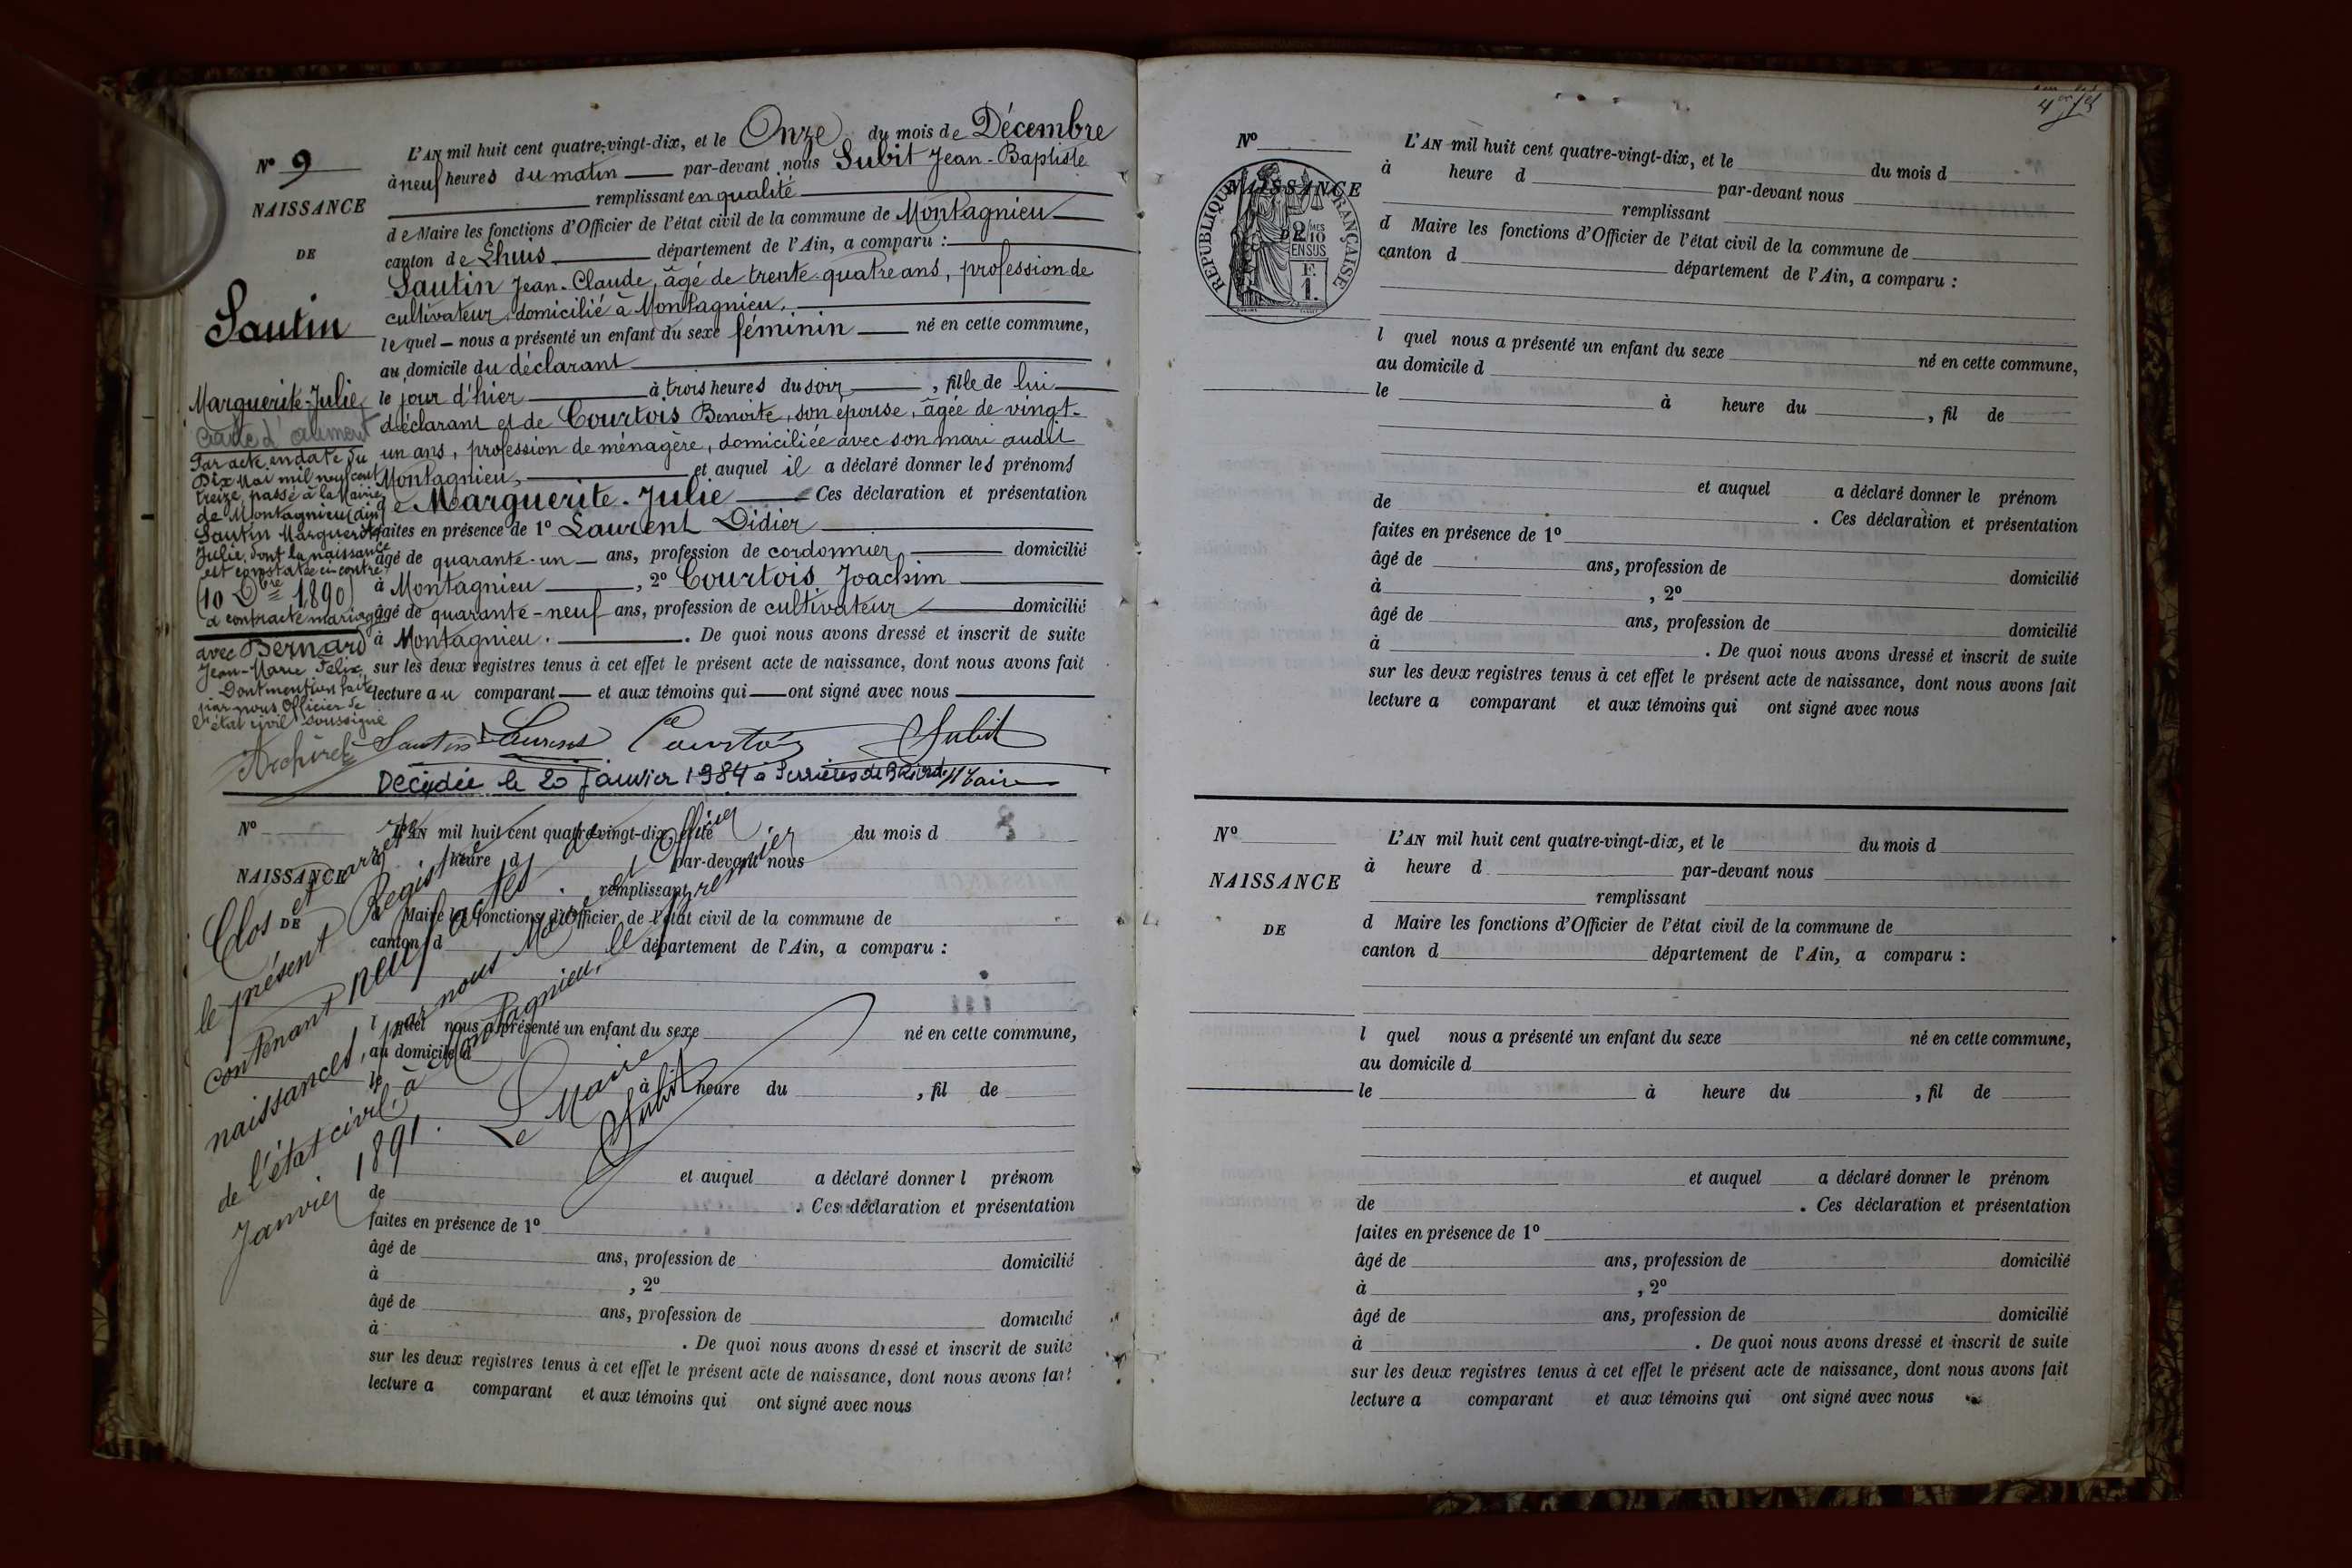 N° 9
NAISSANCE
DE
Sautin
Marguerite-Julie
Carte d'aliment
Par acte en date du
Dix Mai mil neuf cent
treize, passé à la Mairie
de Montagnieu (ain)
Sautin Marguerite
Julie, dont la naissance
est constatée ci-contre
(10 Xbre 1890)
a contracté mariage
avec Bernard
Jean-Marie Félix
Dont mention faite
par nous Officier de
l'état civil soussigné
L'AN mil huit cent quatre-vingt-dix, et le Onze du mois de Décembre
à neuf heures du matin par-devant nous Subit Jean-Baptiste
remplissant en qualité
de Maire les fonctions d'Officier de l'état civil de la commune de Montagnieu
canton de Lhuis département de l'Ain, a comparu :
Sautin Jean-Claude, âgé de trente-quatre ans, profession de
cultivateur, domicilié à Montagnieu,
lequel nous a présenté un enfant du sexe féminin né en cette commune,
au domicile du déclarant
le jour d'hier à trois heures du soir, fille de lui
déclarant et de Courtois Benoite, son épouse, âgée de vingt-
un ans, profession de ménagère, domiciliée avec son mari audit
Montagnieu, et auquel il a déclaré donner les prénoms
de Marguerite-Julie Ces déclaration et présentation
faites en présence de 1° Laurent Didier
âgé de quarante-un ans, profession de cordonnier domicilié
à Montagnieu, 2° Courtois Joachim
âgé de quarante-neuf ans, profession de cultivateur domicilié
à Montagnieu. De quoi nous avons dressé et inscrit de suite
sur les deux registres tenus à cet effet le présent acte de naissance, dont nous avons fait
lecture au comparant et aux témoins qui ont signé avec nous
Sautin Laurent Courtois Subit
Décédée le 20 janvier 1984 à Serrières de Briord. Maire
N°
NAISSANCE
DE
L'AN mil huit cent quatre-vingt-dix, et le du mois d
à heure d par-devant nous
remplissant
d Maire les fonctions d'Officier de l'état civil de la commune de
canton d département de l'Ain, a comparu :
l quel nous a présenté un enfant du sexe né en cette commune,
au domicile d
le à heure du , fil de
et auquel a déclaré donner l prénom
de . Ces déclaration et présentation
faites en présence de 1°
âgé de ans, profession de domicilié
à , 2°
âgé de ans, profession de domicilié
à . De quoi nous avons dressé et inscrit de suite
sur les deux registres tenus à cet effet le présent acte de naissance, dont nous avons fait
lecture a comparant et aux témoins qui ont signé avec nous
Clos et arrêté
le présent Registre
contenant neuf actes de
naissances, par nous Maire et Officier
de l'état civil, à Montagnieu, le premier
Janvier 1891.
Le Maire
Subit
4
N°
NAISSANCE
DE
RÉPUBLIQUE FRANÇAISE
2/10
MES
EN SUS
F.
1.
L'AN mil huit cent quatre-vingt-dix, et le du mois d
à heure d par-devant nous
remplissant
d Maire les fonctions d'Officier de l'état civil de la commune de
canton d département de l'Ain, a comparu :
l quel nous a présenté un enfant du sexe né en cette commune,
au domicile d
le à heure du , fil de
et auquel a déclaré donner le prénom
de . Ces déclaration et présentation
faites en présence de 1°
âgé de ans, profession de domicilié
à , 2°
âgé de ans, profession de domicilié
à . De quoi nous avons dressé et inscrit de suite
sur les deux registres tenus à cet effet le présent acte de naissance, dont nous avons fait
lecture a comparant et aux témoins qui ont signé avec nous
N°
NAISSANCE
DE
L'AN mil huit cent quatre-vingt-dix, et le du mois d
à heure d par-devant nous
remplissant
d Maire les fonctions d'Officier de l'état civil de la commune de
canton d département de l'Ain, a comparu :
l quel nous a présenté un enfant du sexe né en cette commune,
au domicile d
le à heure du , fil de
et auquel a déclaré donner le prénom
de . Ces déclaration et présentation
faites en présence de 1°
âgé de ans, profession de domicilié
à , 2°
âgé de ans, profession de domicilié
à . De quoi nous avons dressé et inscrit de suite
sur les deux registres tenus à cet effet le présent acte de naissance, dont nous avons fait
lecture a comparant et aux témoins qui ont signé avec nous